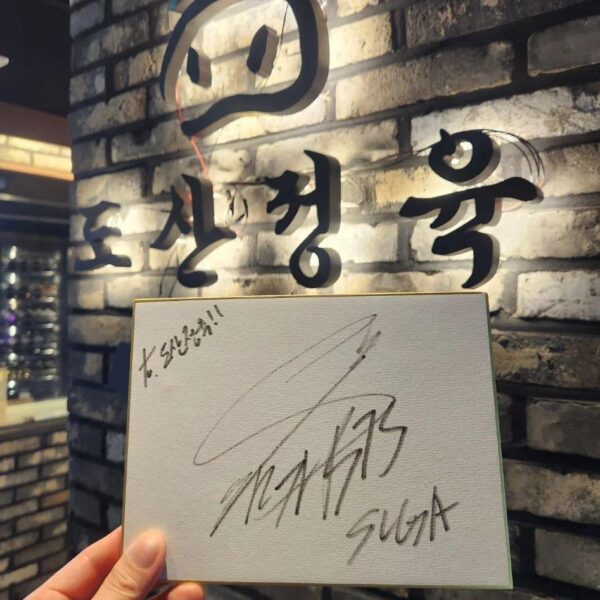 도산정육
to. 도산정육!!
SUGA